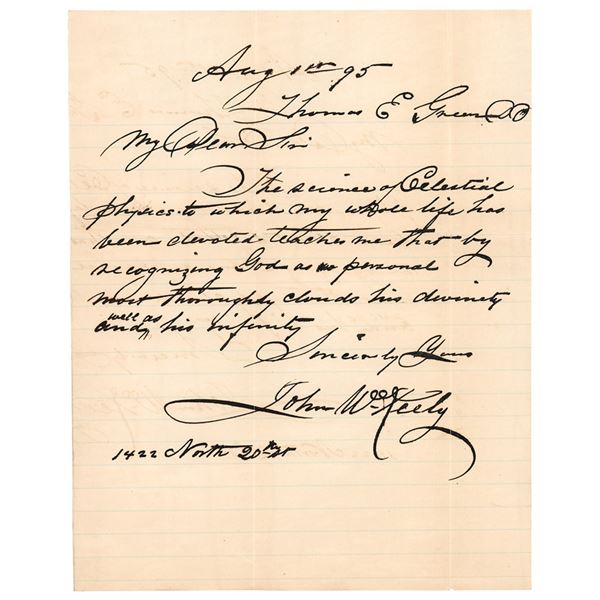 Aug 1st 95
Thomas E Green DD
My Dear Sir
The science of Celestial
physics to which my whole life has
been devoted teaches me that by
recognizing God as personal
most thoroughly clouds his divinity
well as
and his infinity
Sincerely Yours
John W Keely
1422 North 20th St